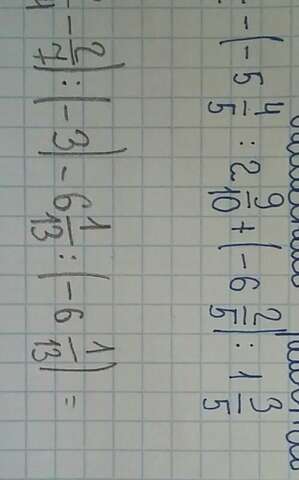 -(-5 4/5 : 2 9/10 + (-6 2/5) : 1 3/5
- 2/7) : (-3) - 6 1/13 : (-6 1/13) =